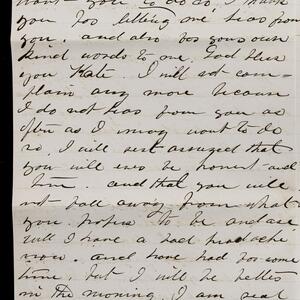 want you to do so. I thank
you for letting me hear from
you. and also for your
kind words to me. God bless
you Kate. I will not com-
plain any more because
I do not hear from you as
often as I may want to do
so, I will rest assured that
you will ever be honest and
true. and that you will
not fall away from what
you profess to be and are
will I have a bad headache
now. and have had for some
time. but I will be better
in the morning. I am real